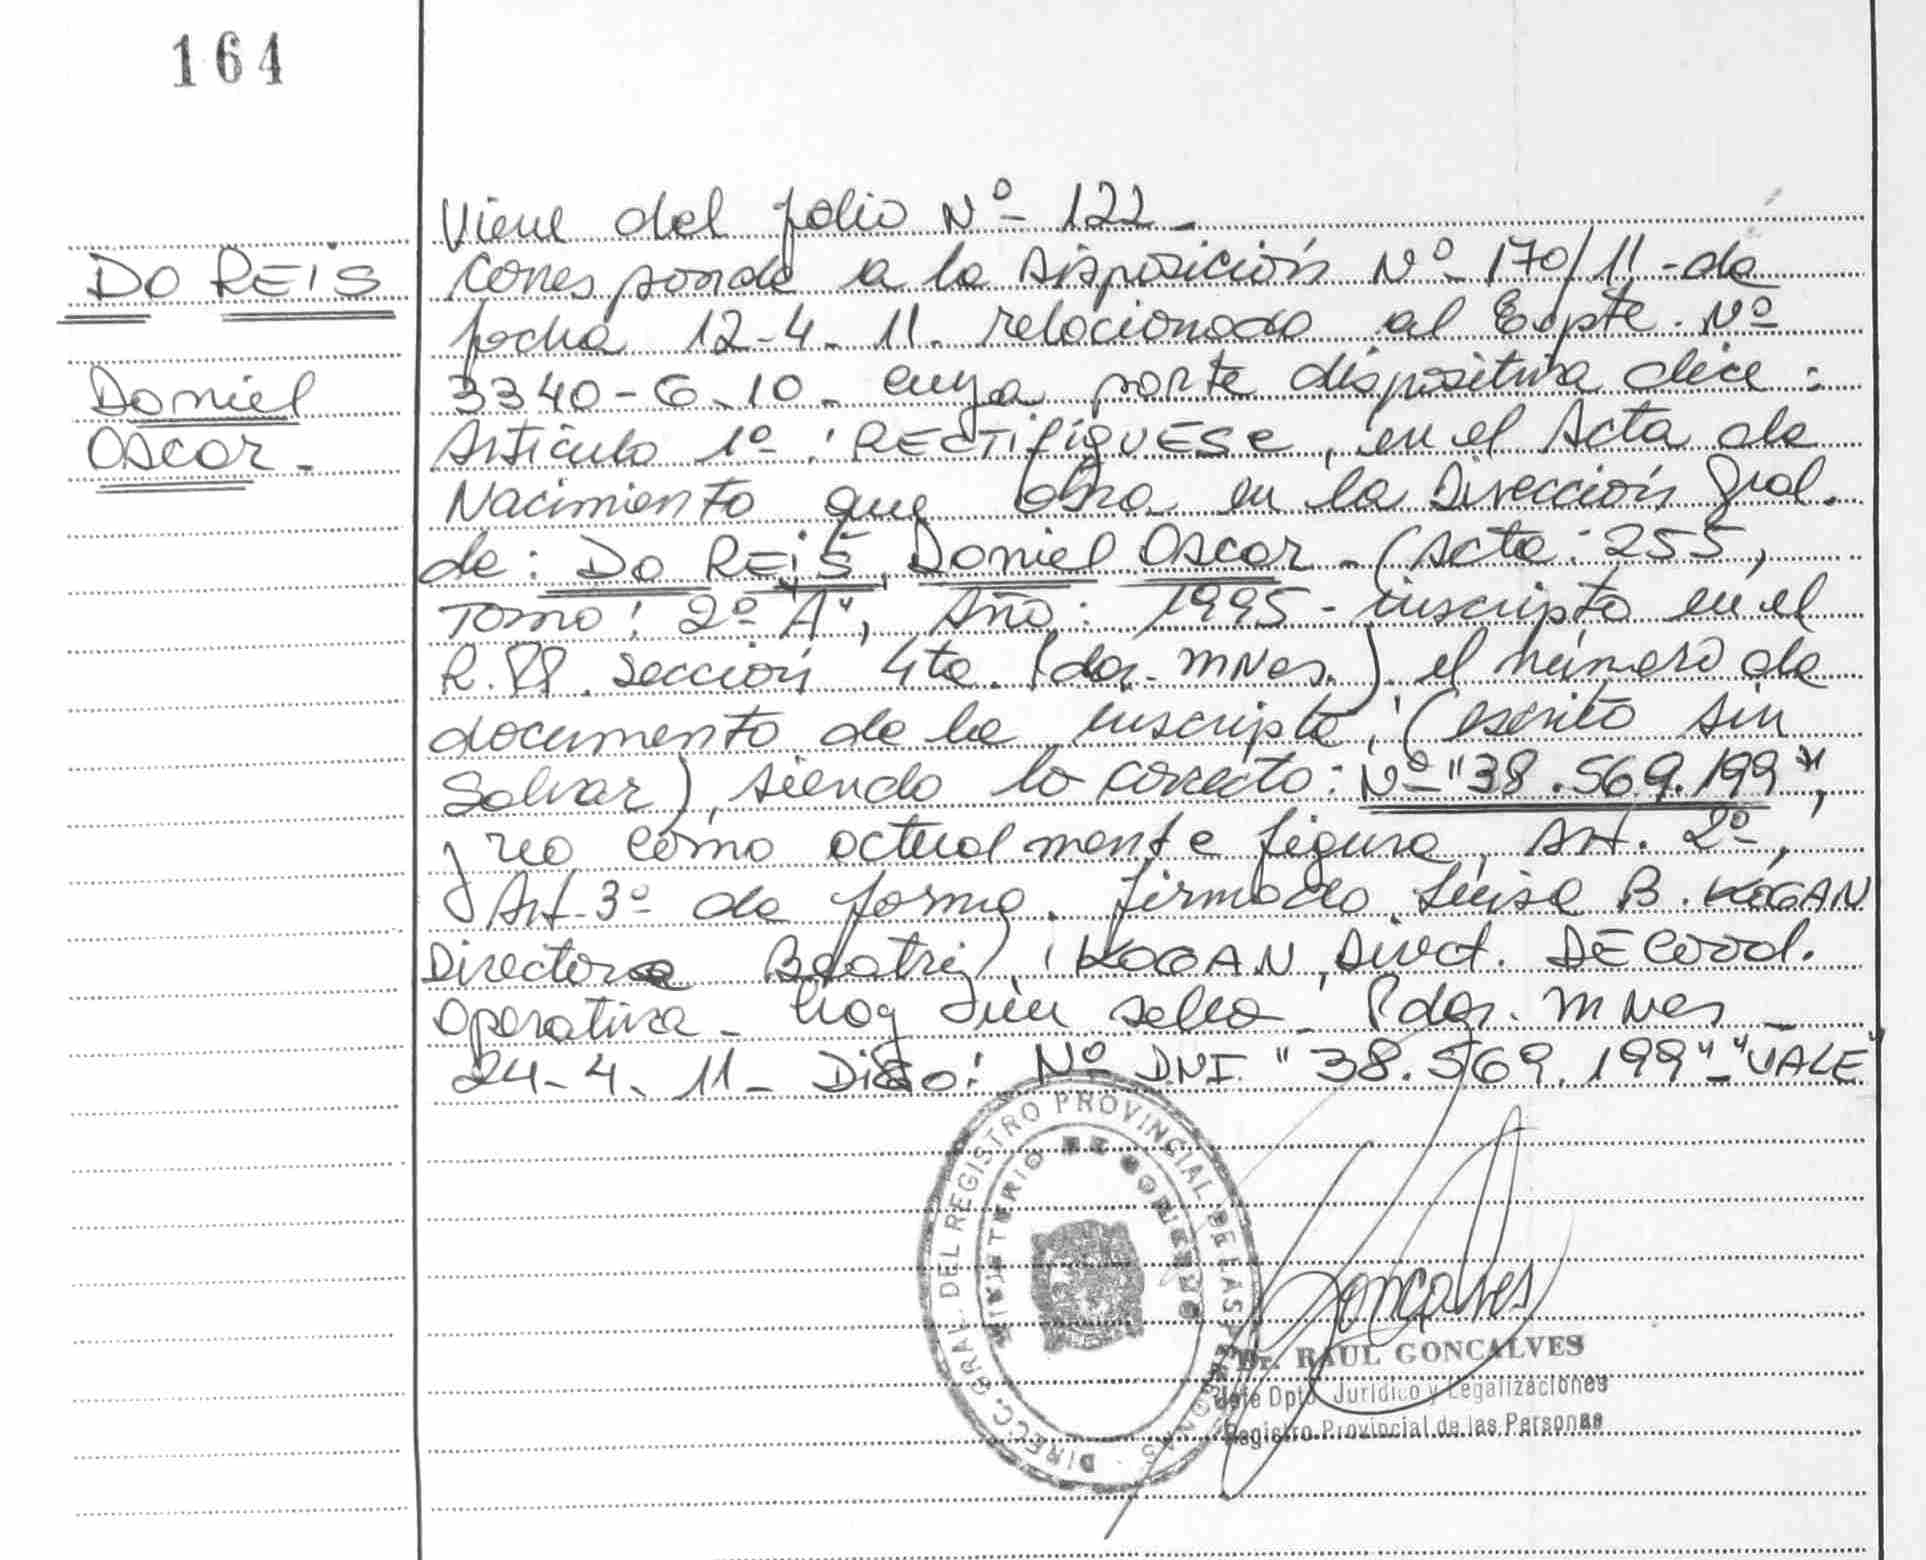 164
DO REIS
Daniel
Oscar.-
Viene del folio Nº 122-
corresponde a la disposición Nº 170/11- de
fecha 12-4-11. relacionado al Expte. Nº
3340-G-10- cuya parte dispositiva dice:
Artículo 1º: RECTIFIQUESE, en el Acta de
Nacimiento que obra en la Dirección Gral.
de: DO REIS, Daniel Oscar- (Acta: 255,
Tomo: 2º "A", Año: 1995- inscripto en el
R.PP. Sección 4ta. Pdas. Mnes.) el número de
documento de la inscripta, (escrito sin
Salvar), siendo lo correcto: Nº "38.569.199",
y no como actualmente figura, Art. 2º,
Art. 3º de forma. firmado. Luisa B. KOGAN
Directora Beatriz KOGAN, Direct. DE Coord.
Operativa- hay sello- Pdas. Mnes-
24-4-11- Digo: Nº D.N.I. "38.569.199"-"VALE"
DIRECC. GRAL. DEL REGISTRO PROVINCIAL DE LAS PERSONAS
MINISTERIO DE GOBIERNO
Goncalves
Dr. RAUL GONCALVES
Jefe Dpto. Jurídico y Legalizaciones
Registro Provincial de las Personas